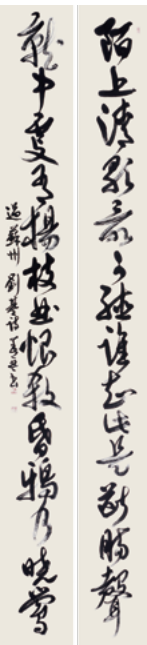 陌上清歌最可聽誰知此是斷腸聲
就中更有楊枝曲恨殺昏鴉及曉鶯
過蘇州 劉基詩